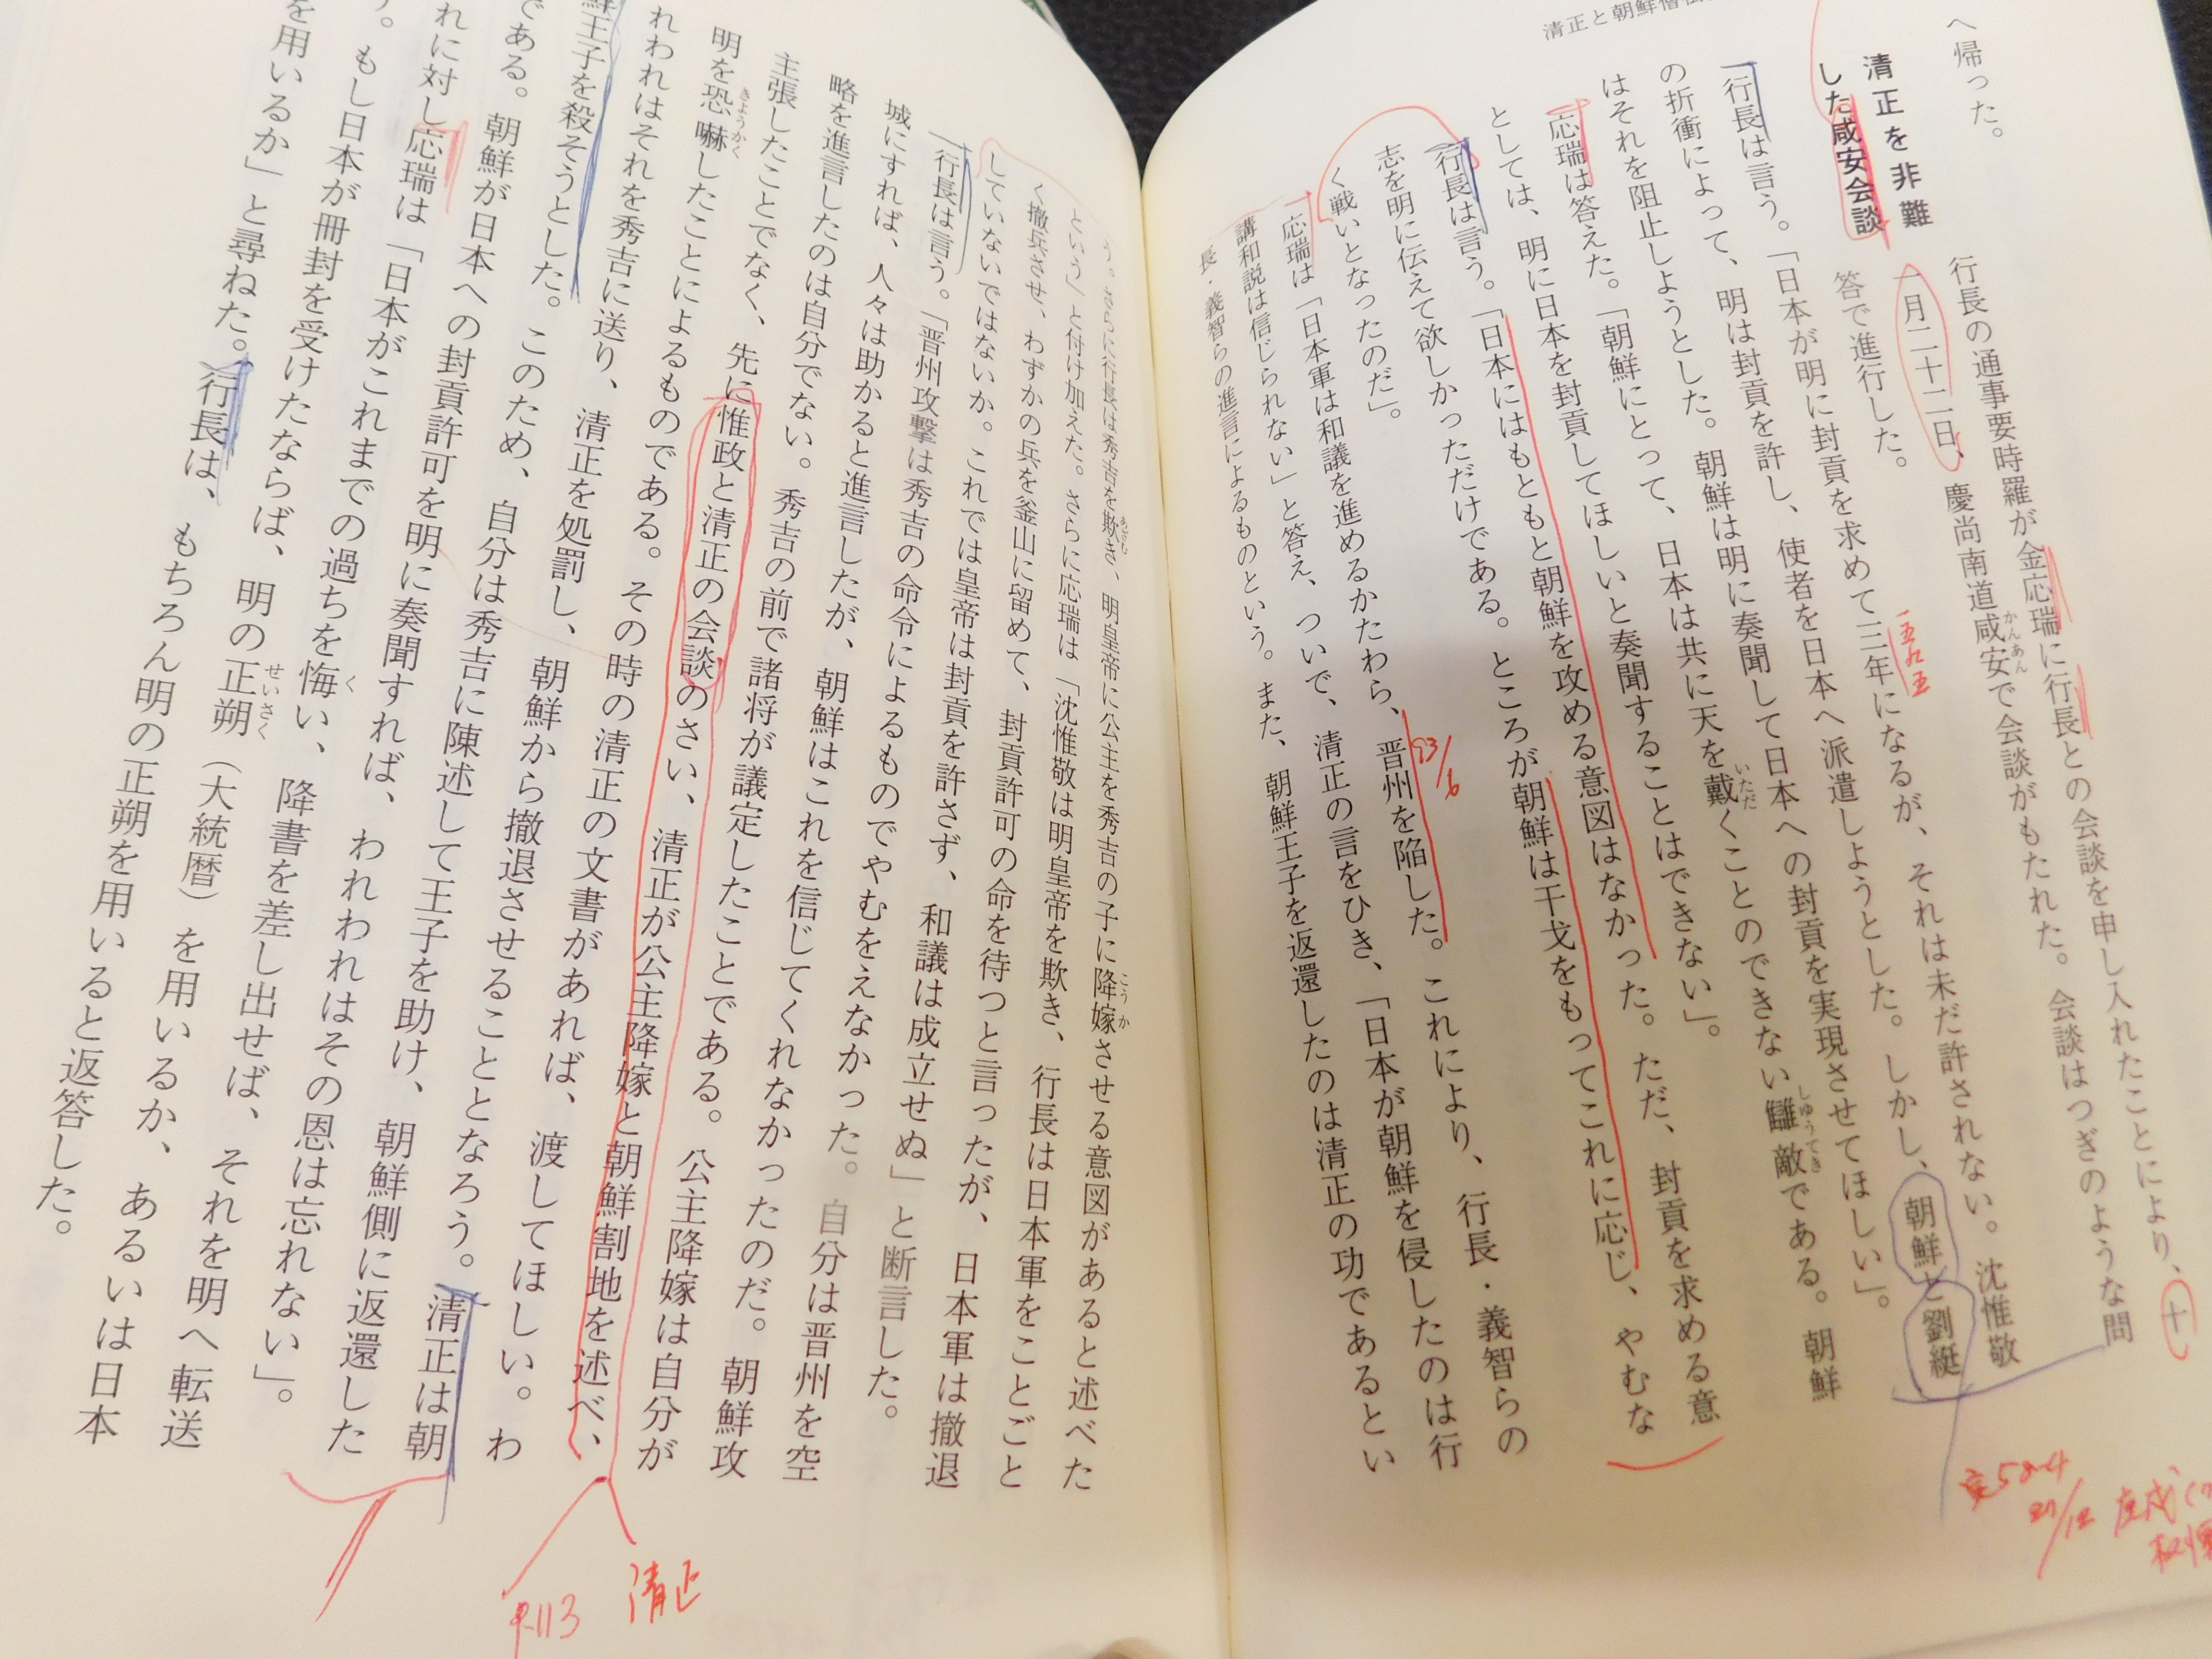 清正と朝鮮僧
へ帰った。
清正を非難
した咸安会談
行長の通事要時羅が金応瑞に行長との会談を申し入れたことにより、十
一月二十二日、慶尚南道咸安で会談がもたれた。会談はつぎのような問
かんあん
答で進行した。
行長は言う。「日本が明に封貢を求めて三年になるが、それは未だ許されない。沈惟敬
一五九五
の折衝によって、明は封貢を許し、使者を日本へ派遣しようとした。しかし、朝鮮と劉綎
はそれを阻止しようとした。朝鮮は明に奏聞して日本への封貢を実現させてほしい」。
応瑞は答えた。「朝鮮にとって、日本は共に天を戴くことのできない讎敵である。朝鮮
いただ
しゅうてき
としては、明に日本を封貢してほしいと奏聞することはできない」。
行長は言う。「日本にはもともと朝鮮を攻める意図はなかった。ただ、封貢を求める意
志を明に伝えて欲しかっただけである。ところが朝鮮は干戈をもってこれに応じ、やむな
く戦いとなったのだ」。
応瑞は「日本軍は和議を進めるかたわら、晋州を陥した。これにより、行長・義智らの
93/6
講和説は信じられない」と答え、ついで、清正の言をひき、「日本が朝鮮を侵したのは行
長・義智らの進言によるものという。また、朝鮮王子を返還したのは清正の功であるとい
う。さらに行長は秀吉を欺き、明皇帝に公主を秀吉の子に降嫁させる意図があると述べた
あざむ
こうか
という」と付け加えた。さらに応瑞は「沈惟敬は明皇帝を欺き、行長は日本軍をことごと
く撤兵させ、わずかの兵を釜山に留めて、封貢許可の命を待つと言ったが、日本軍は撤退
していないではないか。これでは皇帝は封貢を許さず、和議は成立せぬ」と断言した。
行長は言う。「晋州攻撃は秀吉の命令によるものでやむをえなかった。自分は晋州を空
城にすれば、人々は助かると進言したが、朝鮮はこれを信じてくれなかったのだ。朝鮮攻
略を進言したのは自分でない。秀吉の前で諸将が議定したことである。公主降嫁は自分が
主張したことでなく、先に惟政と清正の会談のさい、清正が公主降嫁と朝鮮割地を述べ、
明を恐嚇したことによるものである。その時の清正の文書があれば、渡してほしい。わ
きょうかく
れわれはそれを秀吉に送り、清正を処罰し、朝鮮から撤退させることとなろう。清正は朝
鮮王子を殺そうとした。このため、自分は秀吉に陳述して王子を助け、朝鮮側に返還した
である。朝鮮が日本への封貢許可を明に奏聞すれば、われわれはその恩は忘れない」。
れに対し応瑞は「日本がこれまでの過ちを悔い、降書を差し出せば、それを明へ転送
く
う。もし日本が冊封を受けたならば、明の正朔（大統暦）を用いるか、あるいは日本
せいさく
を用いるか」と尋ねた。行長は、もちろん明の正朔を用いると返答した。
P.113
清正